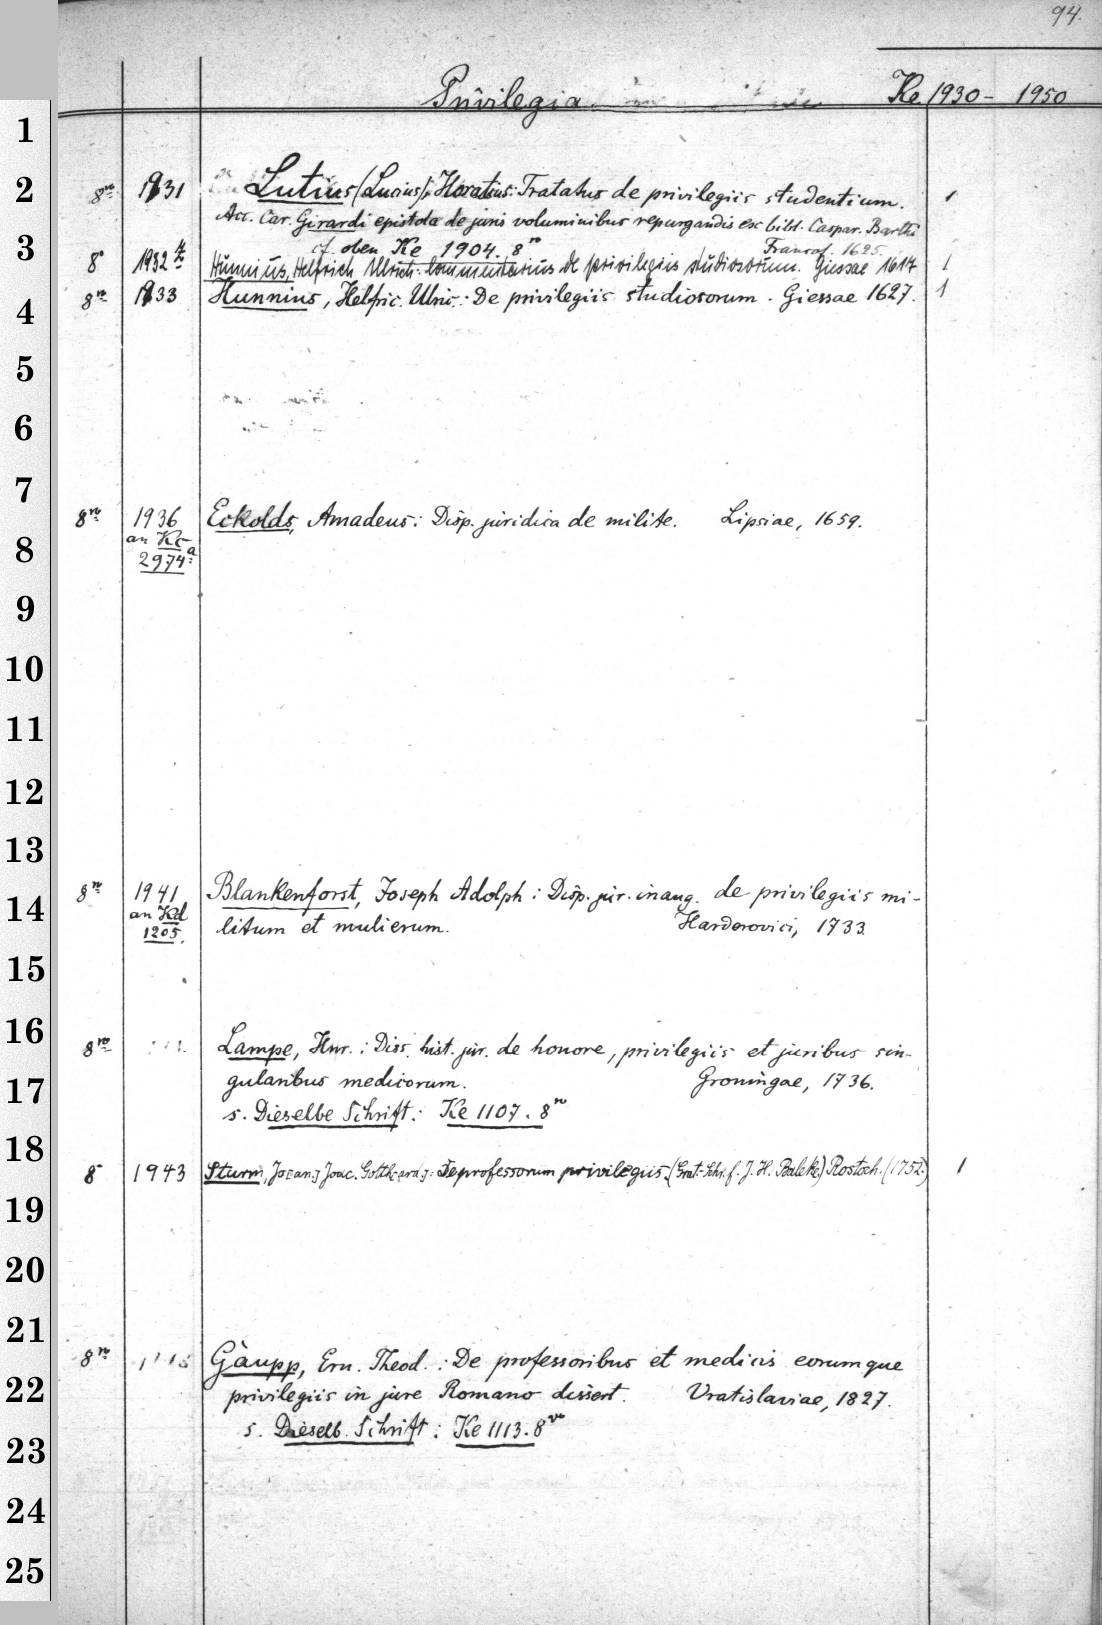 94.
Privilegia Ke 1930 - 1950
1
2
3
4
5
6
7
8
9
10
11
12
13
14
15
16
17
18
19
20
21
22
23
24
25
8vo 1931 Lutius (Lucius), Horatius: Tratatus de privilegiis studentium. 1
Acc. Car. Girardi epistola de juris voluminibus repurgandis ex bibl. Caspar. Barthi
cf. oben Ke 1904. 8vo Francof. 1625.
8° 1932 Hunnius, Helfrich Ulrich: Commentarius de privilegiis studiosorum. Giessae 1617 1
8vo 1933 Hunnius, Helfric. Ulric.: De privilegiis studiosorum. Giessae 1627. 1
8vo 1936 Eckolds, Amadeus: Disp. juridica de milite. Lipsiae, 1659.
an Kc
2974a
8vo 1941 Blankenforst, Joseph Adolph: Disp. jur. inaug. de privilegiis mi-
an Kd litum et mulierum. Harderovici, 1733.
1205.
8vo Lampe, Hnr.: Diss. hist. jur. de honore, privilegiis et juribus sin-
gularibus medicorum. Groningae, 1736.
s. Dieselbe Schrift: Ke 1107. 8vo
8° 1943 Sturm, Jo[an.] Joac. Gotth[ard]: De professorum privilegiis. (Grat.-Schr. f. J. H. Baleke) Rostoch. (1752.) 1
8vo Gaupp, Ern. Theod.: De professoribus et medicis eorumque
privilegiis in jure Romano dissert. Vratislaviae, 1827.
s. Dieselb. Schrift: Ke 1113. 8vo